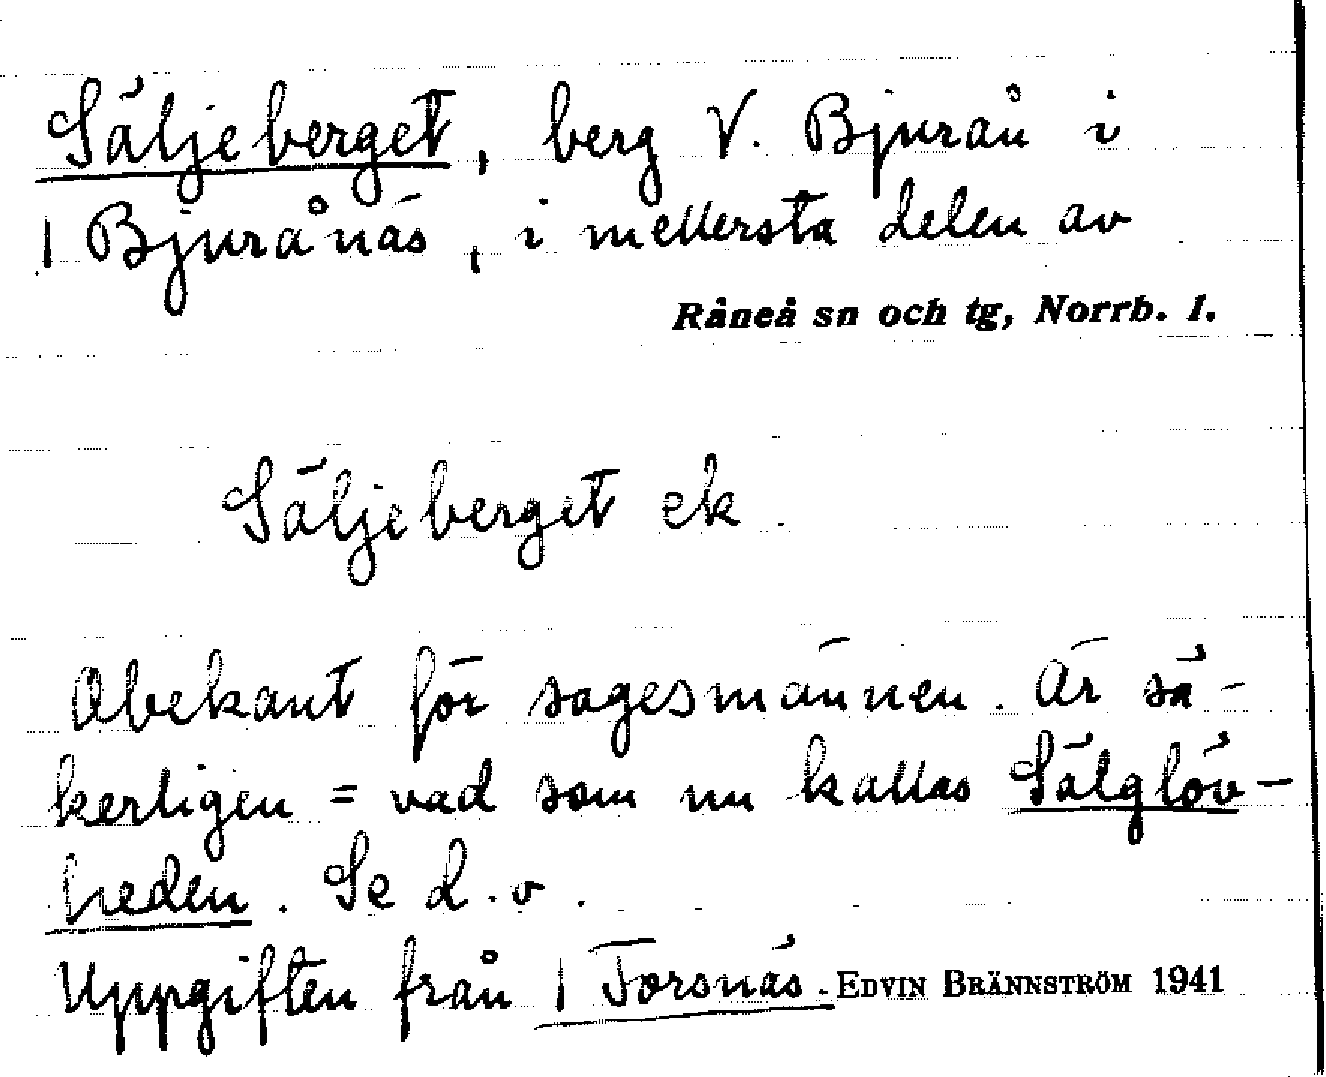 Säljeberget, berg V. Bjurån i
| Bjurånäs, i mellersta delen av
Råneå sn och tg, Norrb. l.
Säljeberget ek
Obekant för sagesmännen. Är sä-
kerligen = vad som nu kallas Sälglöv-
heden. Se d.o.
Uppgiften från | Forsnäs. EDVIN BRÄNNSTRÖM 1941